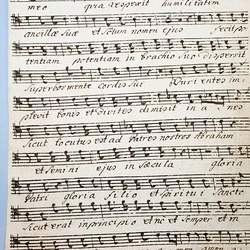 meo quia respexit humilitatem
ancillae suae et sctum nomen ejus fecit po
tentiam potentiam in brachio suo dispersit
superbos mente cordis sui Esurientes im
plevit bonis et divites dimisit in a nes
sicut locutus est ad Patres nostros Abraham
et semini ejus in saecula gloria
Patri gloria Filio et Spiritui Sancto
sicut erat in principio et nc et semper et in